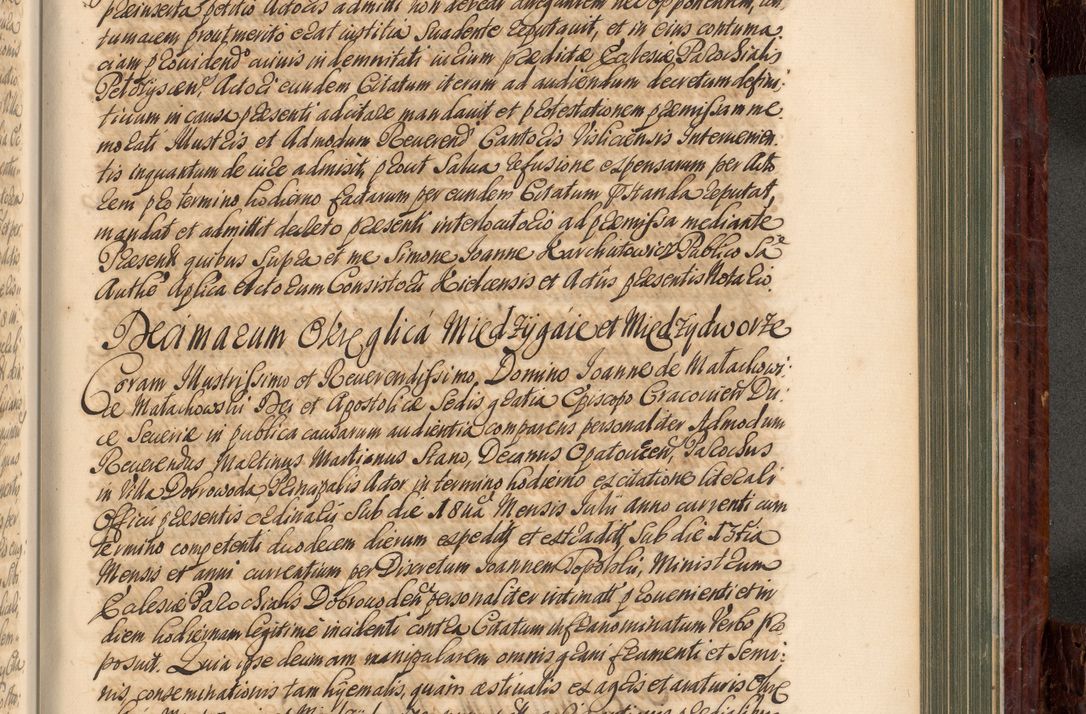 præinserta petitio Actoris admitti non debeat allegantem nec opponentem,
tumacem prout merito erat iustitia Suadente reputauit, et in eius contuma
ciam prouidendo cuiuis indemnitati iurium prædictæ Ecclesiæ Parochialis
eundem Citatum iterum ad audiendum decretum defini-
tiuum in causa præsenti ad citare mandauit et protestationem præmissam me
morati Illustris et Admodum Reuerendi Cantoris Visliciensis Interuenien
tis inquantum de iure admisit, prout Salua refusione expensarum per Acto
rem pro termino hodierno factarum per eundem Citatum præstanda reputat,
mandat et admittit decreto præsenti interlocutorio ad præmissa mediante
Præsent quibus Supra et me Simone Joanne Karchatowicz Publico Sa
Autho Aplica etc. eorum Consistorii Kielcensis et Actus præsentis Notario
Decimarum Okręglicá Miedzÿgáie et Miedzÿdworze
Coram Illustrissimo et Reuerendissimo Domino Joanne de Małachowi-
ce Małachowski Dei et Apostolicæ Sedis gratia Episcopo Cracouien Du-
ce Seueriæ in publica causarum audientia comparens personaliter Admodum
Reuerendus Martinus Martianus Stano, Decanus Opatouien, Parochus
in Villa Dobrowoda Principalis Actor in termino hodierno ex citatione literali
Officii præsentis ordinalis Sub die 18ua Mensis Julii anno currenti cum
termino competenti duodecem dierum expedit et extradit, Sub die 13tia
Mensis et anni curreatium per Discretum Joannem Topolski, Ministrum
Ecclesiæ Parochialis Dobrowoden personaliter intimati proueniienti et in
diem hodiernam legitime incidenti contra Citatum infranominatum Verbo pro
posuit. Quia ipse decimam manipularem omnis grani frumenti et Semi-
nis condeminationis tam hyemalis, quam æstiualis ex agris et araturis Okre